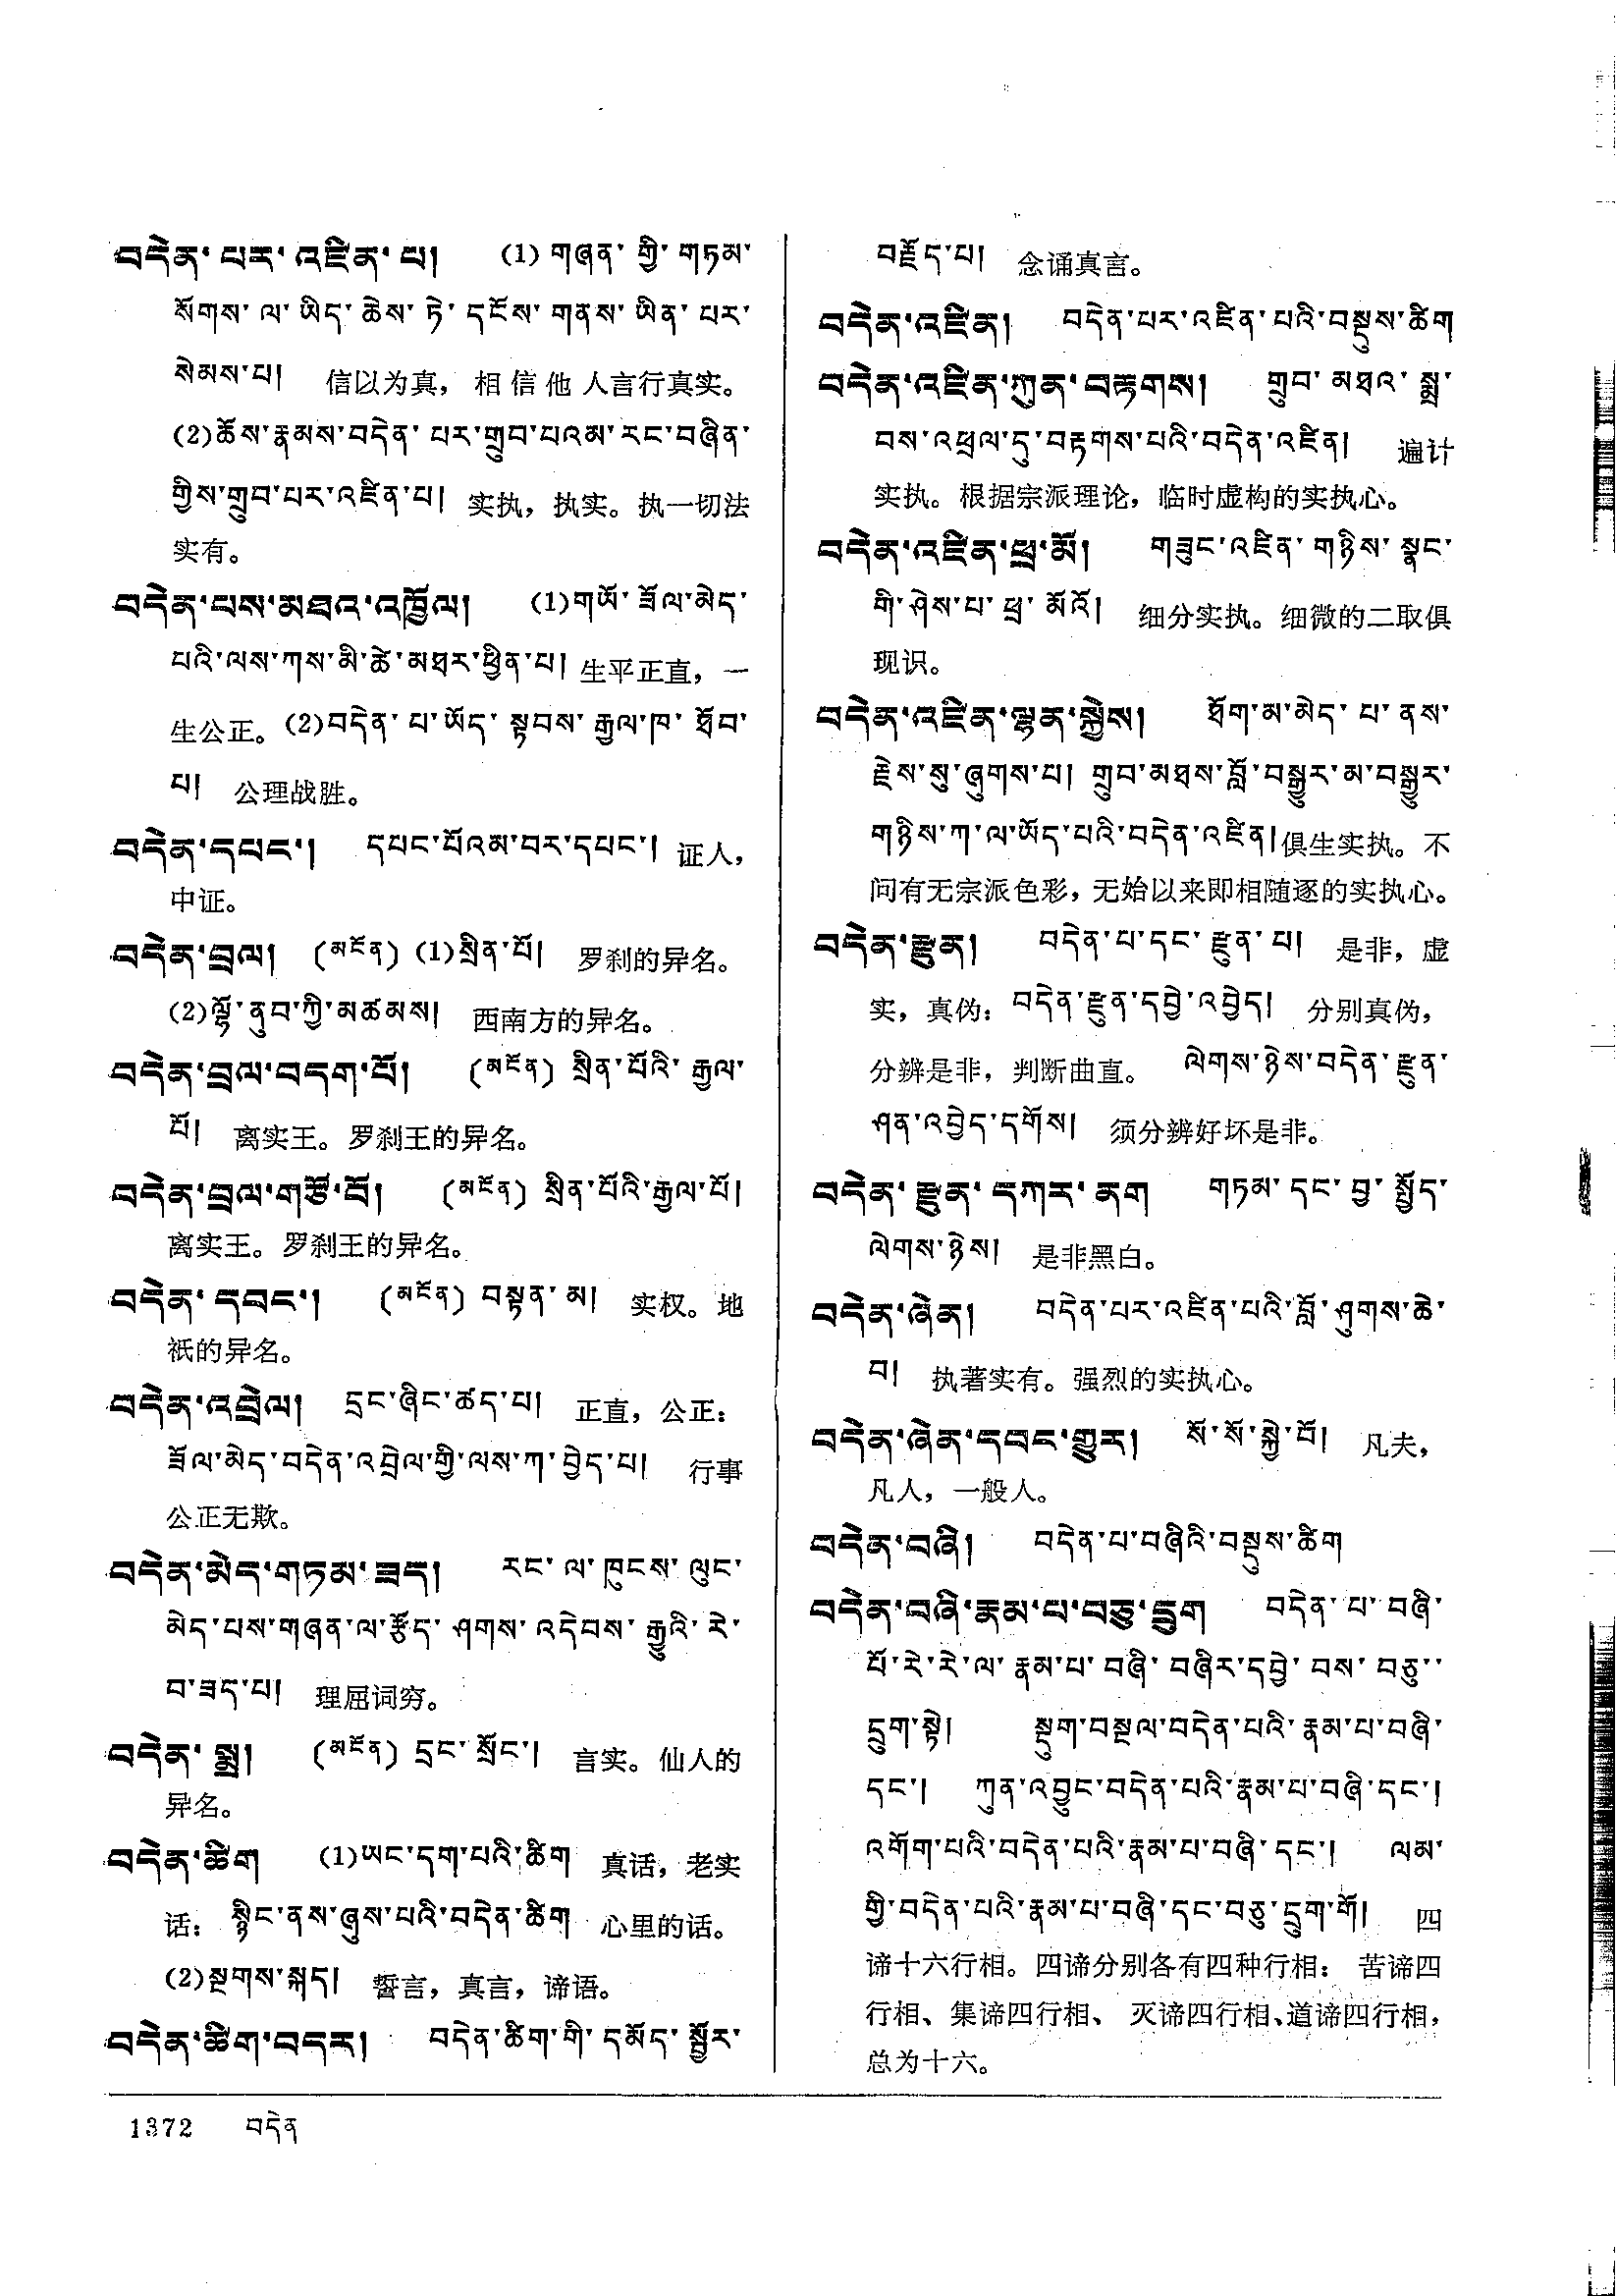 བདེན་པར་འཛིན་པ། (1) གཞན་གྱི་གཏམ་
སོགས་ལ་ཡིད་ཆེས་ཏེ་དངོས་གནས་ཡིན་པར་
སེམས་པ། 信以为真，相信他人言行真实。
(2)ཆོས་རྣམས་བདེན་པར་གྲུབ་པའམ་རང་བཞིན་
གྱིས་གྲུབ་པར་འཛིན་པ། 实执，执实。执一切法
实有。
བདེན་པས་མཐའ་འཁྱོལ། (1)གཡོ་ཟོལ་མེད་
པའི་ལས་ཀས་མི་ཚེ་མཐར་ཕྱིན་པ། 生平正直，一
生公正。(2)བདེན་པ་ཡོད་སྟབས་རྒྱལ་ཁ་ཐོབ་
པ། 公理战胜。
བདེན་དཔང་། དཔང་པོའམ་བར་དཔང་། 证人，
中证。
བདེན་བྲལ། (མངོན) (1)སྲིན་པོ། 罗刹的异名。
(2)ལྷོ་ནུབ་ཀྱི་མཚམས། 西南方的异名。
བདེན་བྲལ་བདག་པོ། (མངོན) སྲིན་པོའི་རྒྱལ་
པོ། 离实王。罗刹王的异名。
བདེན་བྲལ་གཙོ་བོ། (མངོན) སྲིན་པོའི་རྒྱལ་པོ།
离实王。罗刹王的异名。
བདེན་དབང་། (མངོན) བསྟན་མ། 实权。地
祇的异名。
བདེན་འབྲེལ། དྲང་ཞིང་ཚད་པ། 正直，公正：
ཟོལ་མེད་བདེན་འབྲེལ་གྱི་ལས་ཀ་བྱེད་པ། 行事
公正无欺。
བདེན་མེད་གཏམ་ཟད། རང་ལ་ཁུངས་ལུང་
མེད་པས་གཞན་ལ་རྩོད་ཤགས་འདེབས་རྒྱུའི་རེ་
བ་ཟད་པ། 理屈词穷。
བདེན་སྨྲ། (མངོན) དྲང་སྲོང་། 言实。仙人的
异名。
བདེན་ཚིག (1)ཡང་དག་པའི་ཚིག 真话，老实
话：སྙིང་ནས་ཞུས་པའི་བདེན་ཚིག 心里的话。
(2)སྔགས་སྐད། 誓言，真言，谛语。
བདེན་ཚིག་བདར། བདེན་ཚིག་གི་དམོད་སྦྱོར་
བརྗོད་པ། 念诵真言。
བདེན་འཛིན། བདེན་པར་འཛིན་པའི་བསྡུས་ཚིག
བདེན་འཛིན་ཀུན་བརྟགས། གྲུབ་མཐའ་སྨྲ་
བས་འཕྲལ་དུ་བརྟགས་པའི་བདེན་འཛིན། 遍计
实执。根据宗派理论，临时虚构的实执心。
བདེན་འཛིན་ཕྲ་མོ། གཟུང་འཛིན་གཉིས་སྣང་
གི་ཤེས་པ་ཕྲ་མོའོ། 细分实执。细微的二取俱
现识。
བདེན་འཛིན་ལྷན་སྐྱེས། ཐོག་མ་མེད་པ་ནས་
རྗེས་སུ་ཞུགས་པ། གྲུབ་མཐས་བློ་བསྒྱུར་མ་བསྒྱུར་
གཉིས་ཀ་ལ་ཡོད་པའི་བདེན་འཛིན། 俱生实执。不
问有无宗派色彩，无始以来即相随逐的实执心。
བདེན་རྫུན། བདེན་པ་དང་རྫུན་པ། 是非，虚
实，真伪：བདེན་རྫུན་དབྱེ་འབྱེད། 分别真伪，
分辨是非，判断曲直。 ལེགས་ཉེས་བདེན་རྫུན་
ཤན་འབྱེད་དགོས། 须分辨好坏是非。
བདེན་རྫུན་དཀར་ནག གཏམ་དང་བྱ་སྤྱོད་
ལེགས་ཉེས། 是非黑白。
བདེན་ཞེན། བདེན་པར་འཛིན་པའི་བློ་ཤུགས་ཆེ་
བ། 执著实有。强烈的实执心。
བདེན་ཞེན་དབང་གྱུར། སོ་སོ་སྐྱེ་བོ། 凡夫，
凡人，一般人。
བདེན་བཞི། བདེན་པ་བཞིའི་བསྡུས་ཚིག
བདེན་བཞི་རྣམ་པ་བཅུ་དྲུག བདེན་པ་བཞི་
པོ་རེ་རེ་ལ་རྣམ་པ་བཞི་བཞིར་དབྱེ་བས་བཅུ་
དྲུག་སྟེ། སྡུག་བསྔལ་བདེན་པའི་རྣམ་པ་བཞི་
དང་། ཀུན་འབྱུང་བདེན་པའི་རྣམ་པ་བཞི་དང་།
འགོག་པའི་བདེན་པའི་རྣམ་པ་བཞི་དང་། ལམ་
གྱི་བདེན་པའི་རྣམ་པ་བཞི་དང་བཅུ་དྲུག་གོ། 四
谛十六行相。四谛分别各有四种行相：苦谛四
行相、集谛四行相、灭谛四行相、道谛四行相，
总为十六。
1372 བདེན